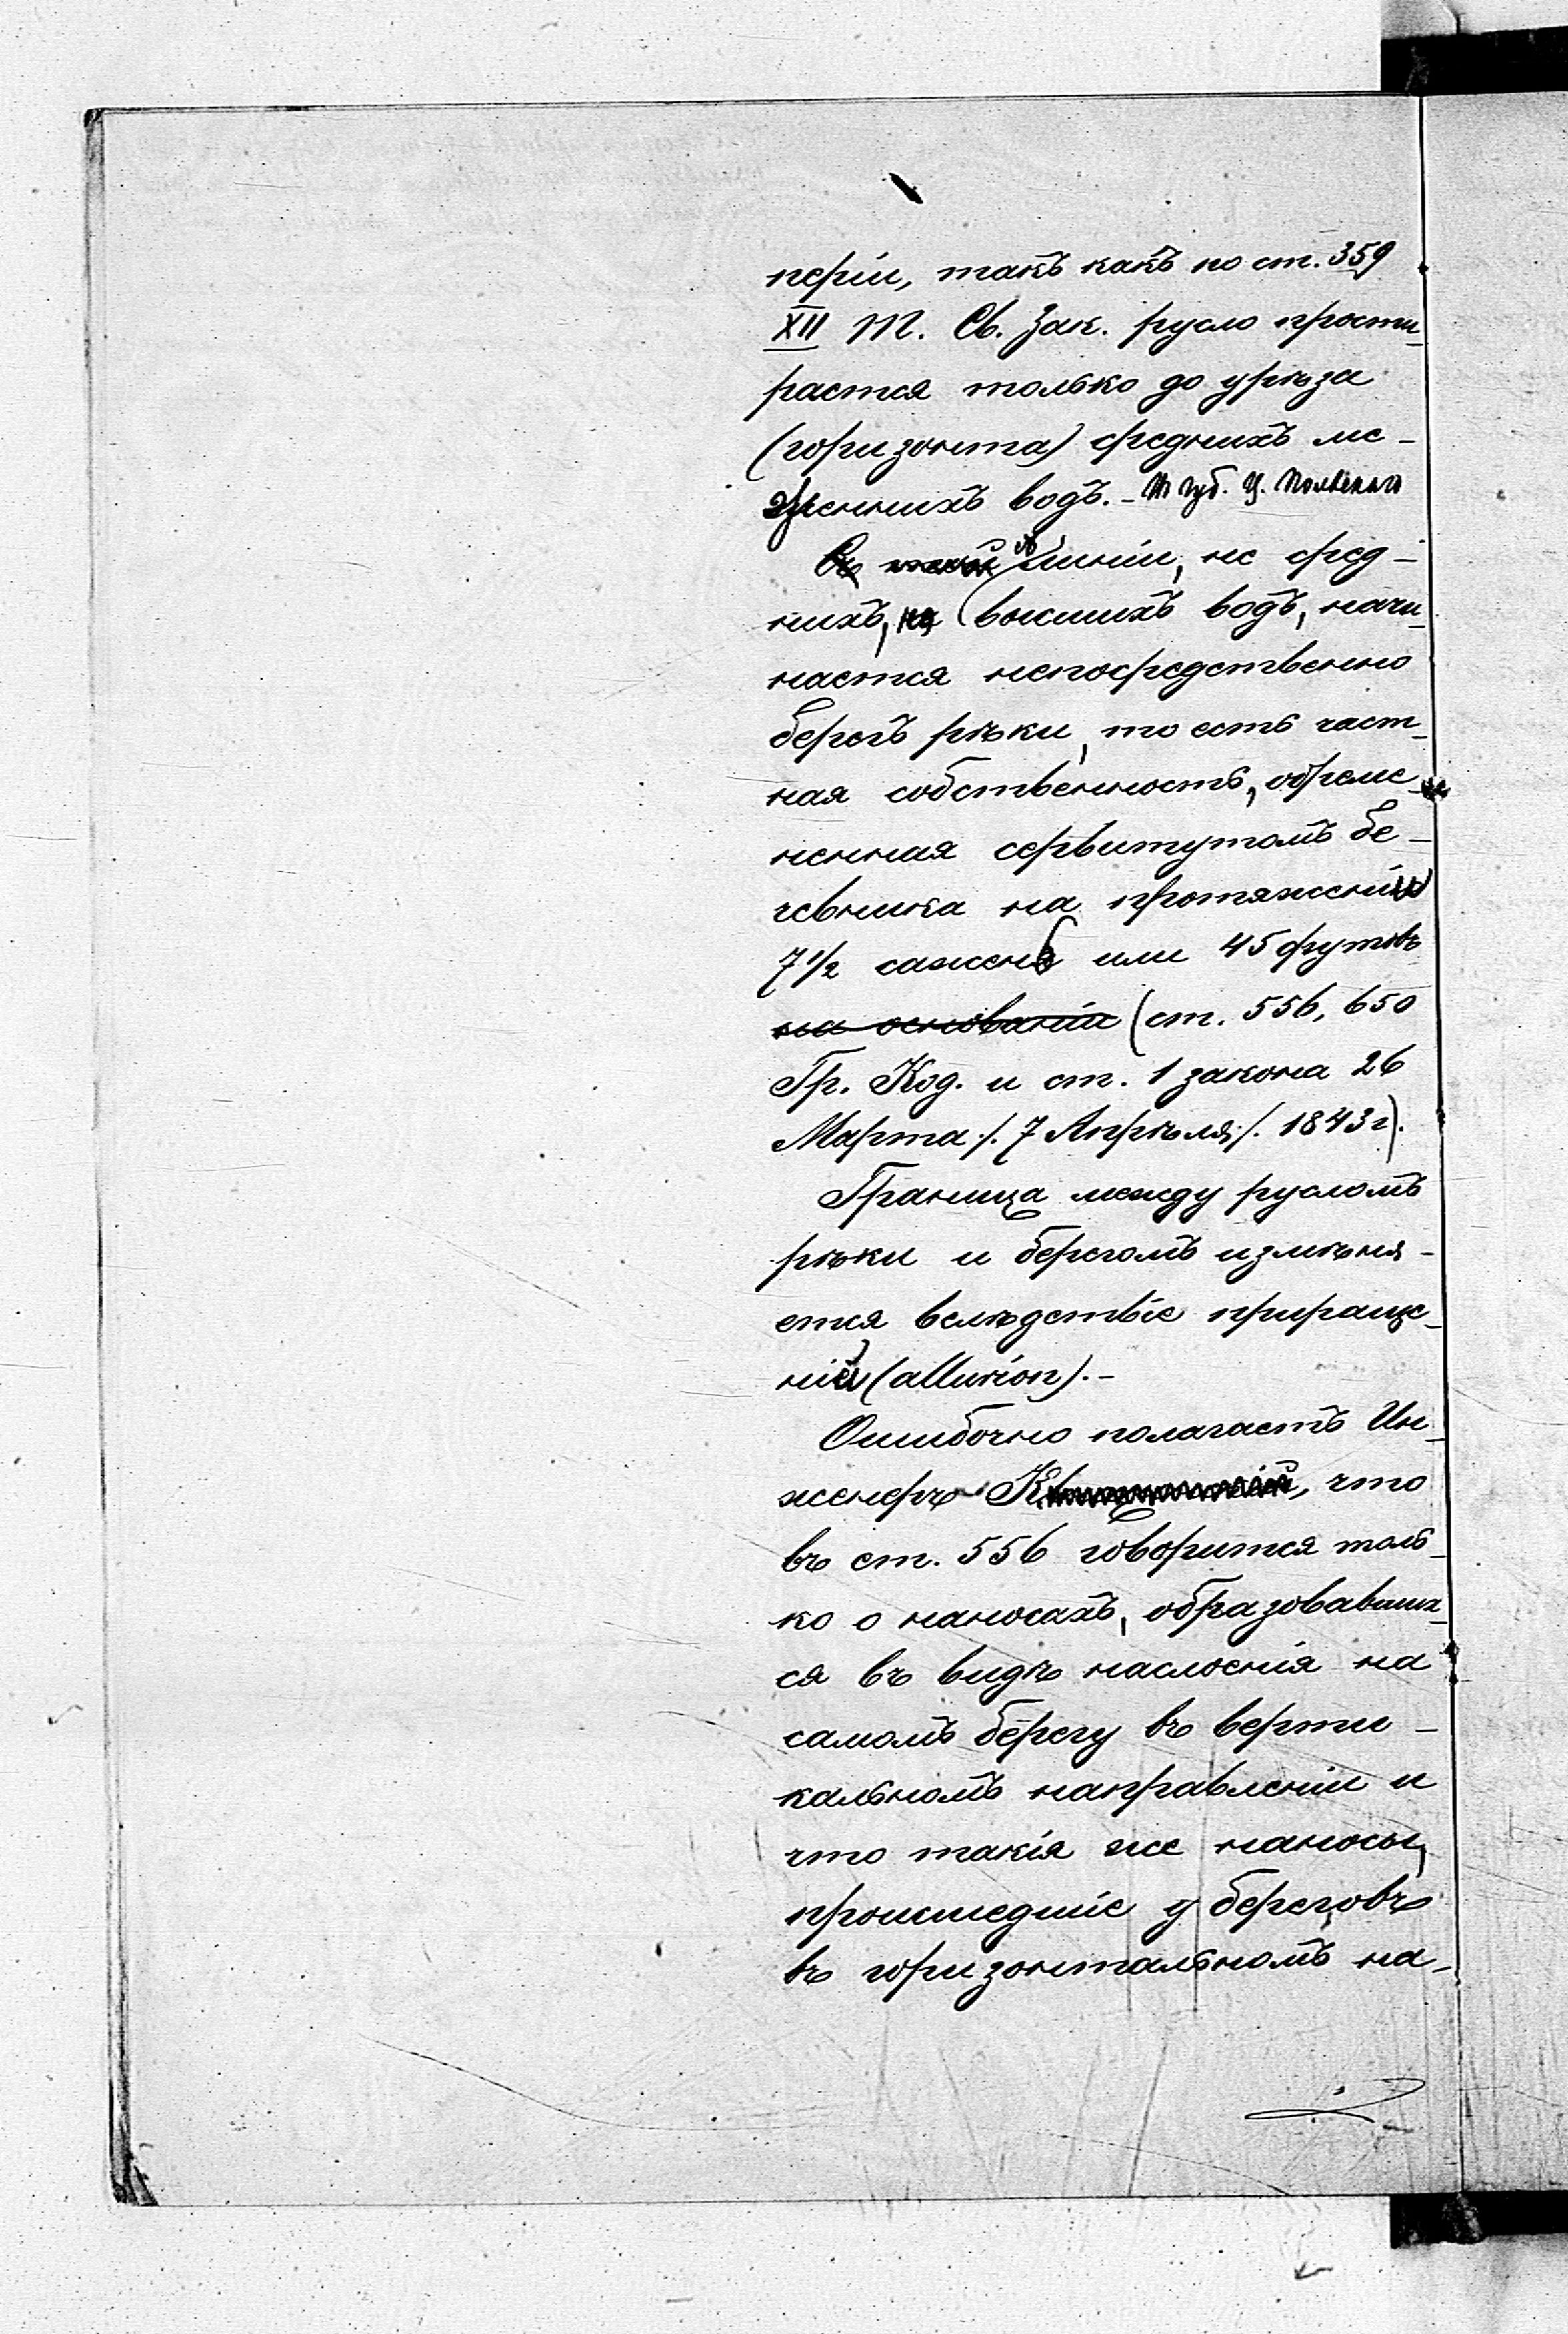 періи, такъ какъ по ст. 359
XII Т. Св. Зак. русло прости-
рается только до урѣза
(горизонта) среднихъ ме-
женнихъ водъ. - Въ губ. Ц. Польскаго
Съ линіи, не сред-
нихъ, высшихъ водъ, начи-
нается непосредственно
берегъ рѣки, то есть част-
ная собственность, обреме-
ненная сервитутомъ бе-
чевника на протяженіи
7 1/2 сажень или 45 футовъ
на основаніи (ст. 556, 650
Гр. Код. и ст. 1 закона 26
Марта /. 7 Апрѣля /. 1843 г).
Граница между русломъ
рѣки и берегомъ измѣня-
ется вслѣдствіе прираще-
ній (alluvion). -
Ошибочно полагаетъ Ин-
женеръ что
въ ст. 556 говорится толь-
ко о наносахъ, образовавших-
ся въ видѣ наслоенія на
самомъ берегу въ верти-
кальномъ направленіи и
что такія же наносы,
происшедшіе у береговъ
въ горизонтальномъ на-